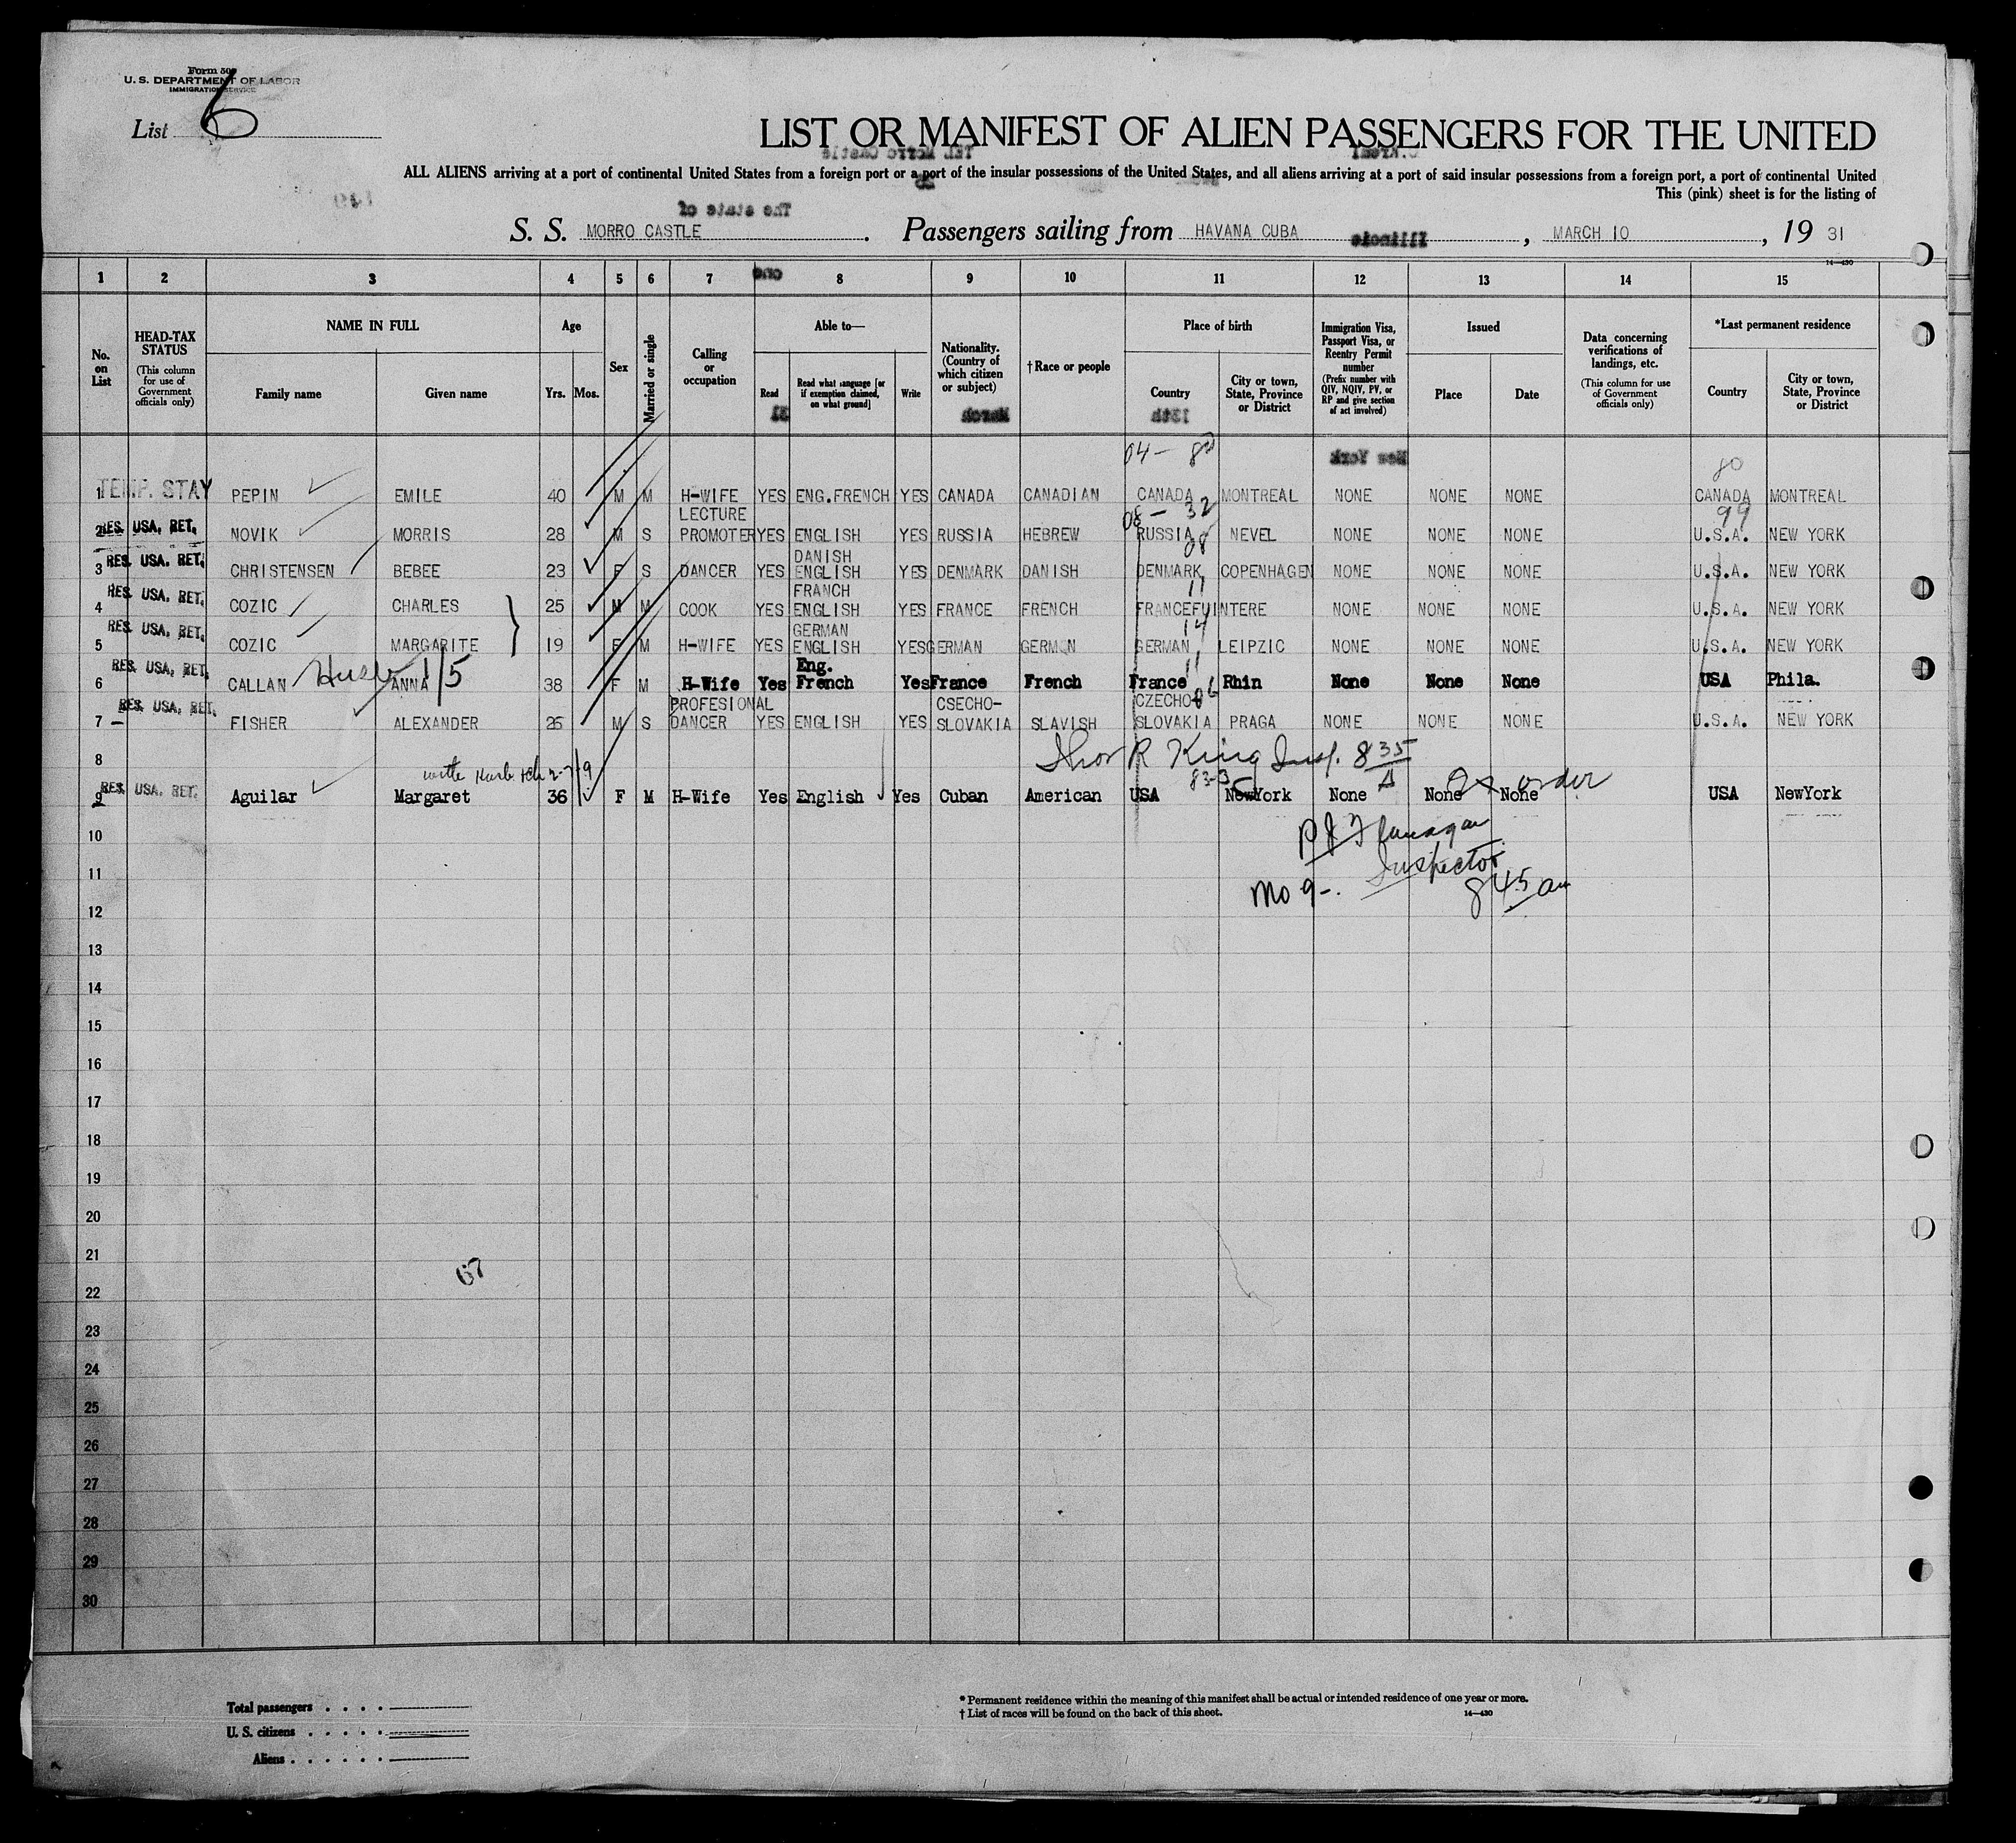 Form 500
U. S. DEPARTMENT OF LABOR
IMMIGRATION SERVICE
List 6
LIST OR MANIFEST OF ALIEN PASSENGERS FOR THE UNITED
ALL ALIENS arriving at a port of continental United States from a foreign port or a port of the insular possessions of the United States, and all aliens arriving at a port of said insular possessions from a foreign port, a port of continental United
This (pink) sheet is for the listing of
S. S. MORRO CASTLE . Passengers sailing from HAVANA CUBA , MARCH 10 , 19 31
14—430
1 2 3 4 5 6 7 8 9 10 11 12 13 14 15
No. on List
HEAD-TAX STATUS (This column for use of Government officials only)
NAME IN FULL
Family name Given name
Age
Yrs. Mos.
Sex
Married or single
Calling or occupation
Able to—
Read Read what language [or if exemption claimed, on what ground] Write
Nationality. (Country of which citizen or subject)
†Race or people
Place of birth
Country City or town, State, Province or District
Immigration Visa, Passport Visa, or Reentry Permit number (Prefix number with QIV, NQIV, PV, or RP and give section of act involved)
Issued
Place Date
Data concerning verifications of landings, etc. (This column for use of Government officials only)
*Last permanent residence
Country City or town, State, Province or District
04 — 80 80
1 TEMP. STAY PEPIN EMILE 40 M M H-WIFE YES ENG.FRENCH YES CANADA CANADIAN CANADA MONTREAL NONE NONE NONE CANADA MONTREAL
LECTURE 08 — 32 99
2 RES. USA, RET. NOVIK MORRIS 28 M S PROMOTER YES ENGLISH YES RUSSIA HEBREW RUSSIA NEVEL NONE NONE NONE U.S.A. NEW YORK
DANISH 08
3 RES. USA, RET. CHRISTENSEN BEBEE 23 F S DANCER YES ENGLISH YES DENMARK DANISH DENMARK COPENHAGEN NONE NONE NONE U.S.A. NEW YORK
FRANCH 11
4 RES. USA, RET. COZIC CHARLES 25 M M COOK YES ENGLISH YES FRANCE FRENCH FRANCE FUINTERE NONE NONE NONE U.S.A. NEW YORK
GERMAN 14
5 RES. USA, RET. COZIC MARGARITE 19 F M H-WIFE YES ENGLISH YES GERMAN GERMAN GERMAN LEIPZIC NONE NONE NONE U.S.A. NEW YORK
Eng. 11
6 RES. USA, RET. CALLAN ANNA 38 F M H-Wife Yes French Yes France French France Rhin None None None USA Phila.
PROFESIONAL CSECHO- CZECHO- 06
7 RES. USA, RET. FISHER ALEXANDER 25 M S DANCER YES ENGLISH YES SLOVAKIA SLAVISH SLOVAKIA PRAGA NONE NONE NONE U.S.A. NEW YORK
8 R King Insp. 835
9 RES. USA, RET. Aguilar Margaret 36 F M H-Wife Yes English Yes Cuban American USA NewYork None None None USA NewYork
10 Flanagan
11 Inspector
12 845 am
13
14
15
16
17
18
19
20
21
67
22
23
24
25
26
27
28
29
30
Total passengers . . . .
U. S. citizens . . . . .
Aliens . . . . . .
* Permanent residence within the meaning of this manifest shall be actual or intended residence of one year or more.
† List of races will be found on the back of this sheet.
14—430